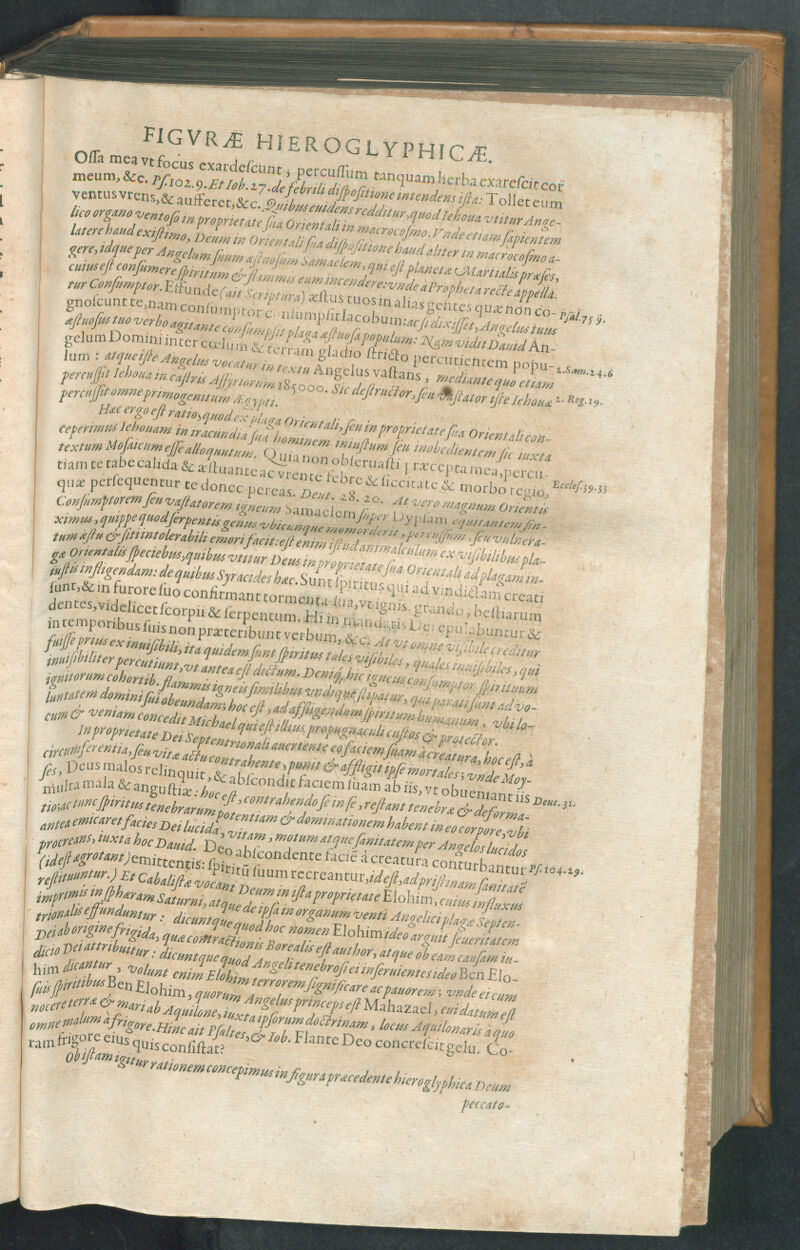 FIGVRÆ HIEROGLYPHICÆ.
Oſſa mea vt focus exardeſcunt, percuſſum tanquam herba exareſcit cor
meum, &c. Pſ.102.9. Et Iob.27. de febrili diſpoſitione intendens iſta: Tollet eum
ventus vrens, & aufferet, &c. Quibus euidens redditur, quod Iehoua vtitur Ange-
lico organo ventoſo in proprietate ſua Orientali in macrocoſmo. Vnde etiam ſapientem
latere haud exiſtimo, Deum in Orientali ſua diſpoſitione haud aliter in macrocoſmo a-
gere, idque per Angelum ſuum æſtuoſum Samaelem, qui eſt planetæ Martialis præſes,
cuius eſt conſumere ſpiritum & flammis eum incendere: vnde à Propheta recte appella-
tur Conſumptor. Effunde (ait Scriptura) æſtus tuos in alias gentes quæ non co-
gnoſcunt te, nam conſumptor conſumpſit Iacobum: ac ſi dixiſſet, Angelus tuus
æſtuoſus tuo verbo agitante conſumpſit plaga æſtuoſa populum: Nam vidit Dauid An-
gelum Domini inter cœlum & terram gladio ſtricto percutientem popu-
lum: atque iſte Angelus vocatur in textu Angelus vaſtans, mediante quo etiam
percuſſit Iehoua in caſtris Aſſyriorum 185000. Sic deſtructor, ſeu vaſtator iſte Iehouæ
percuſſit omne primogenitum Ægypti.
Pſal.75 9.
2.Sam.24.6
2. Reg.19.
Hæc ergo eſt ratio, quod ex plaga Orientali, ſeu in proprietate ſua Orientali con-
ceperimus Iehouam in iracundia ſua hominem iniuſtum ſeu inobedientem ſic iuxta
textum Moſaicum eſſe alloquutum. Quia non obſeruaſti præcepta mea, percu-
tiam te tabe calida & æſtuante ac vrente febre & ſiccitate & morbo regio,
quæ perſequentur te donec pereas. Deut. 28. 20. At vero magnum Orientis
Conſumptorem ſeu vaſtatorem igneum Samaelem ſuper Dypſam equitantem fin-
ximus, quippe quod ſerpentis genus vbicunque momorderit, percuſſum, ſeu vulnera-
tum æſtu & ſiti intolerabili emori facit: eſt enim iſtud animalculum ex viſibilibus pla-
gæ Orientalis ſpeciebus, quibus vtitur Deus in proprietate ſua Orientali ad plagam in-
iuſtis infligendam: de quibus Syracides hæc. Sunt ſpiritus qui ad vindictam creati
ſunt, & in furore ſuo confirmant tormenta ſua, vt ignis, grando, beſtiarum
dentes, videlicet ſcorpii & ſerpentum. Hi in mandatis Dei epulabuntur &
in temporibus ſuis non præteribunt verbum, &c. At vt omne viſibile creditur
fuiſſe prius ex inuiſibili, ita quidem ſunt ſpiritus tales viſibiles, quales inuiſibiles, qui
inuiſibiliter percutiunt, vt antea eſt dictum. Deniq; hic igneus conſumptor ſpirituum
ignitorum cohortib. flammis igneis ſimilibus vndique ſtipatur, qui parati ſunt ad vo-
luntatem domini ſui obeundam; hoc eſt, ad affligendum ſpiritum humanum, vbi lo-
cum & veniam concedit Michael qui eſt illius propugnaculi cuſtos & protector.
Eccleſ.39.33
In proprietate Dei Septentrionali auertente eo faciem ſuam à creatura, hoc eſt, à
circumferentia, ſeu vitæ actu contrahente, punit & affligit ipſe mortales; vnde Moy-
ſes, Deus malos relinquit, & abſcondit faciem ſuam ab iis, vt obueniant iis
multa mala & anguſtiæ: hoc eſt, contrahendo ſe in ſe, reſtant tenebræ & deforma-
tio; ac tunc ſpiritus tenebrarum potentiam & dominationem habent in eo corpore, vbi
antea emicaret facies Dei lucida, vitam, motum atque ſanitatem per Angelos lucidos
procreans, iuxta hoc Dauid. Deo abſcondente faciē à creatura conturbantur
(id eſt ægrotant) emittentis: ſpiritū ſuum recreantur, id eſt, ad priſtinam ſanitatē
reſtituuntur.) Et Cabaliſtæ vocant Deum in iſta proprietate Elohim, cuius influxus
imprimis in ſphæram Saturni, atque de ipſa in organum venti Angelici plagæ Septen-
trionalis effunduntur: dicuntque quod hoc nomen Elohim ideo arguit ſeueritatem
Dei ab origine frigida, quæ contractionis Borealis eſt author, atque ob eam cauſam iu-
dicio Dei attribuitur: dicuntque quod Angeli tenebroſi ei inſeruientes ideo Ben Elo-
him dicantur, volunt enim Elohim terrorem ſignificare ac pauorem; vnde ei cum
ſuis ſpiritibus Ben Elohim, quorum Angelus princeps eſt Mahazael, cui datum eſt
nocere terræ & mari ab Aquilone, iuxta ipſorum doctrinam, locus Aquilonaris à quo
omne malum à frigore. Hinc ait Pſaltes, & Iob. Flante Deo concreſcit gelu. Co-
ram frigore eius quis conſiſtat?
Deut. 31.
Pſ.104.29.
Ob iſtam igitur rationem concepimus in figura præcedente hieroglyphica Deum
peccato-